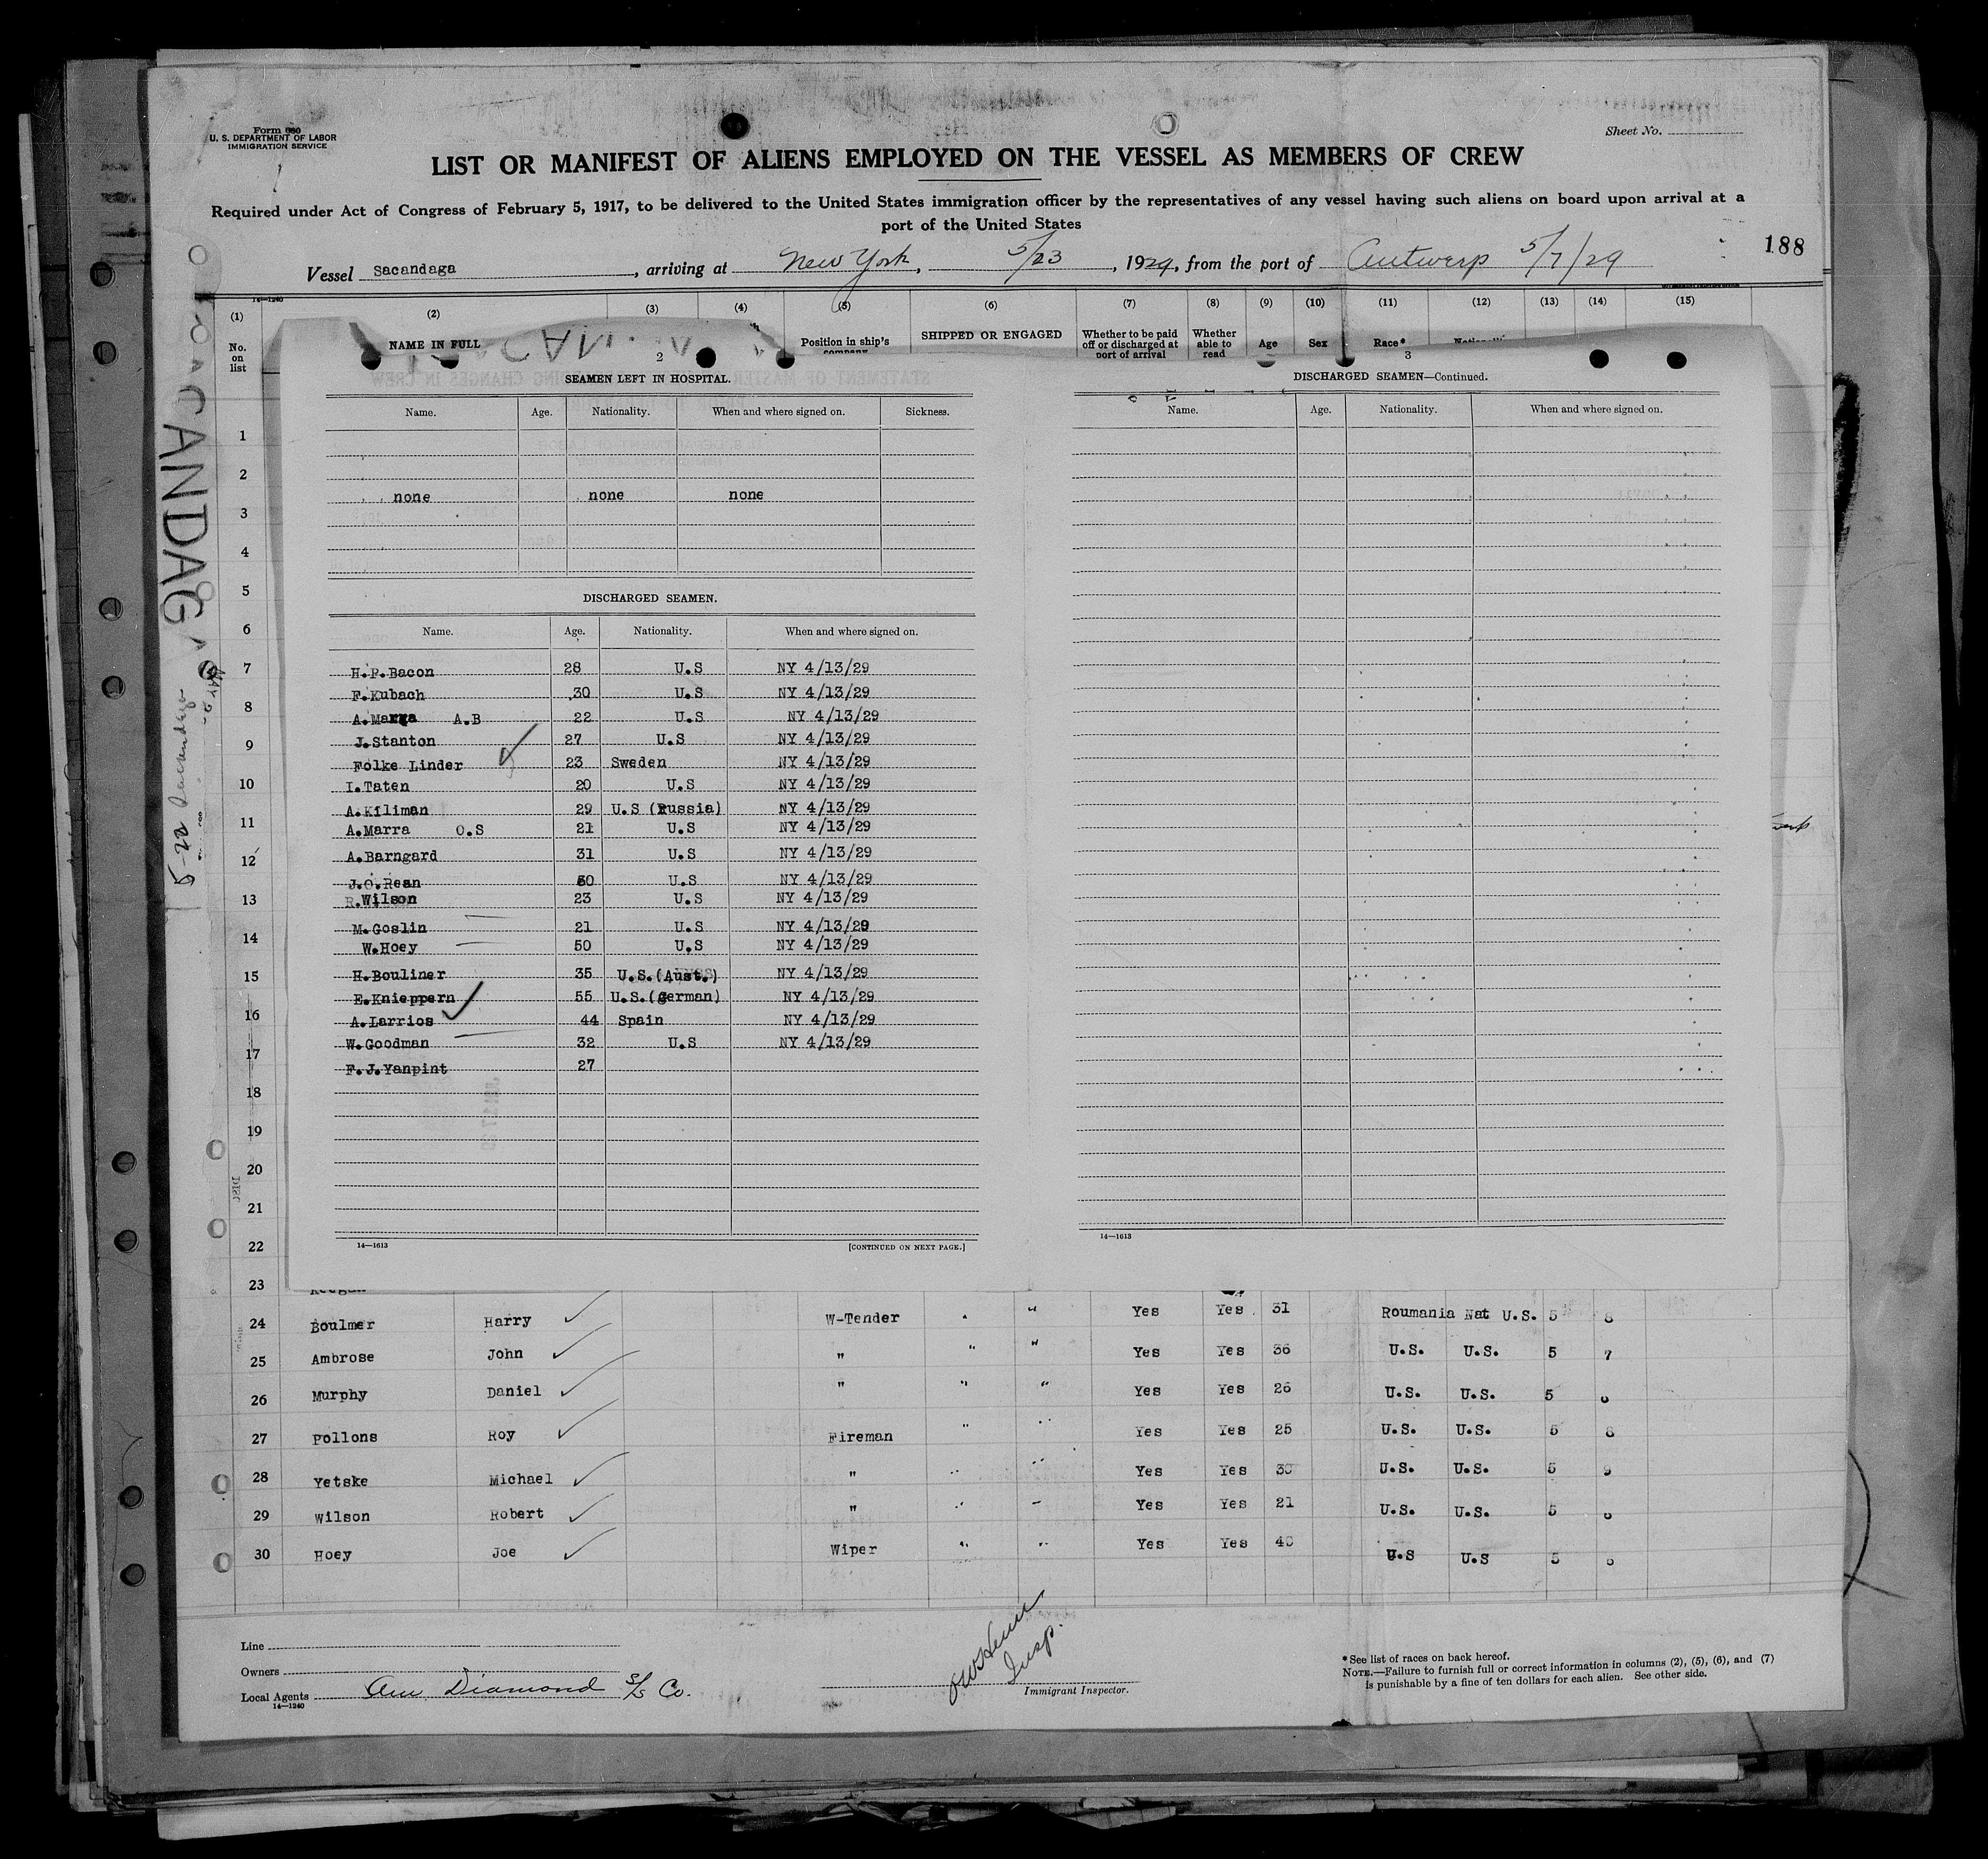 Form 680
U. S. DEPARTMENT OF LABOR
IMMIGRATION SERVICE
Sheet No.
LIST OR MANIFEST OF ALIENS EMPLOYED ON THE VESSEL AS MEMBERS OF CREW
Required under Act of Congress of February 5, 1917, to be delivered to the United States immigration officer by the representatives of any vessel having such aliens on board upon arrival at a
port of the United States
188
Vessel Sacandaga, arriving at New York, 5/23, 1929, from the port of Antwerp 5/7/29
14—1240
(1) (2) (3) (4) (5) (6) (7) (8) (9) (10) (11) (12) (13) (14) (15)
No. on list NAME IN FULL Position in ship's company SHIPPED OR ENGAGED Whether to be paid off or discharged at port of arrival Whether able to read Age Sex Race*
2
SEAMEN LEFT IN HOSPITAL.
Name. Age. Nationality. When and where signed on. Sickness.
none none none
DISCHARGED SEAMEN.
Name. Age. Nationality. When and where signed on.
H.P.Bacon 28 U.S NY 4/13/29
F.Kubach 30 U.S NY 4/13/29
A.Marra A.B 22 U.S NY 4/13/29
J.Stanton 27 U.S NY 4/13/29
Folke Linder 23 Sweden NY 4/13/29
I.Taten 20 U.S NY 4/13/29
A.Kiliman 29 U.S (Russia) NY 4/13/29
A.Marra O.S 21 U.S NY 4/13/29
A.Barngard 31 U.S NY 4/13/29
J.O.Rean 50 U.S NY 4/13/29
R.Wilson 23 U.S NY 4/13/29
M.Goslin 21 U.S NY 4/13/29
W.Hoey 50 U.S NY 4/13/29
H.Bouliner 35 U.S.(Aust.) NY 4/13/29
E.Knieppern 55 U.S.(german) NY 4/13/29
A.Larrios 44 Spain NY 4/13/29
W.Goodman 32 U.S NY 4/13/29
F.J.Yanpint 27
14—1613
[CONTINUED ON NEXT PAGE.]
3
DISCHARGED SEAMEN—Continued.
Name. Age. Nationality. When and where signed on.
14—1613
1
2
3
4
5
6
7
8
9
10
11
12
13
14
15
16
17
18
19
20
21
22
23 Keegan
24 Boulmer Harry W-Tender " " Yes Yes 31 Roumania Nat U.S. 5 8
25 Ambrose John " " " Yes Yes 36 U.S. U.S. 5 7
26 Murphy Daniel " " " Yes Yes 26 U.S. U.S. 5
27 Pollons Roy Fireman " " Yes Yes 25 U.S. U.S. 5 8
28 Yetske Michael " " " Yes Yes 30 U.S. U.S. 5 9
29 Wilson Robert " " " Yes Yes 21 U.S. U.S. 5
30 Hoey Joe Wiper " " Yes Yes 40 U.S U.S 5
Line
Owners
Local Agents Am Diamond S/S Co.
14—1240
Insp.
Immigrant Inspector.
* See list of races on back hereof.
NOTE.—Failure to furnish full or correct information in columns (2), (5), (6), and (7)
is punishable by a fine of ten dollars for each alien. See other side.
SACANDAGA
5-22 Sacandaga